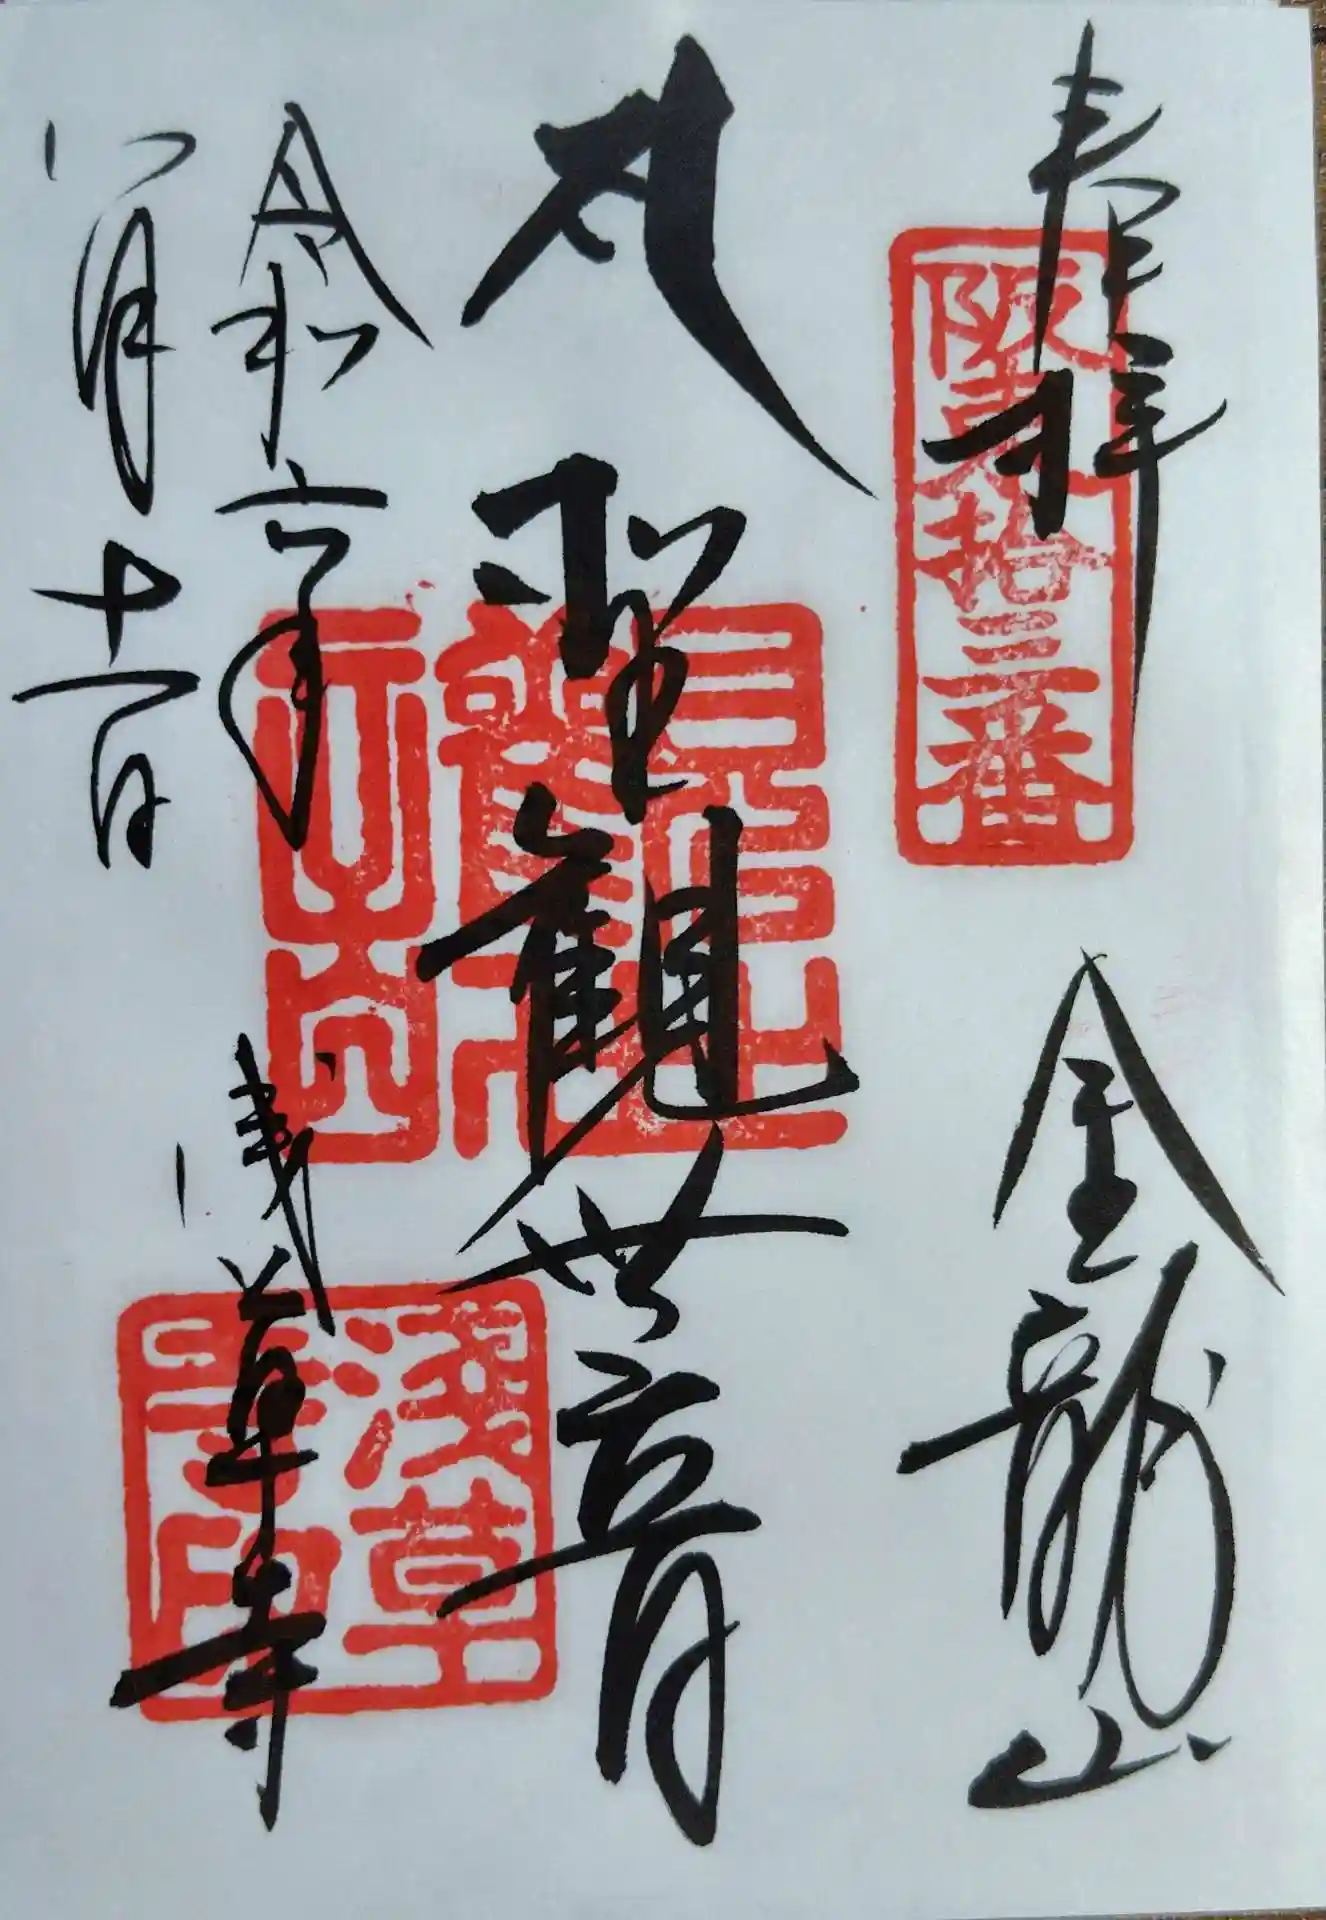 奉拝
阪東拾三番
金龍山
聖観世音
令和六年
八月十一日
浅草寺
淺草
寺印